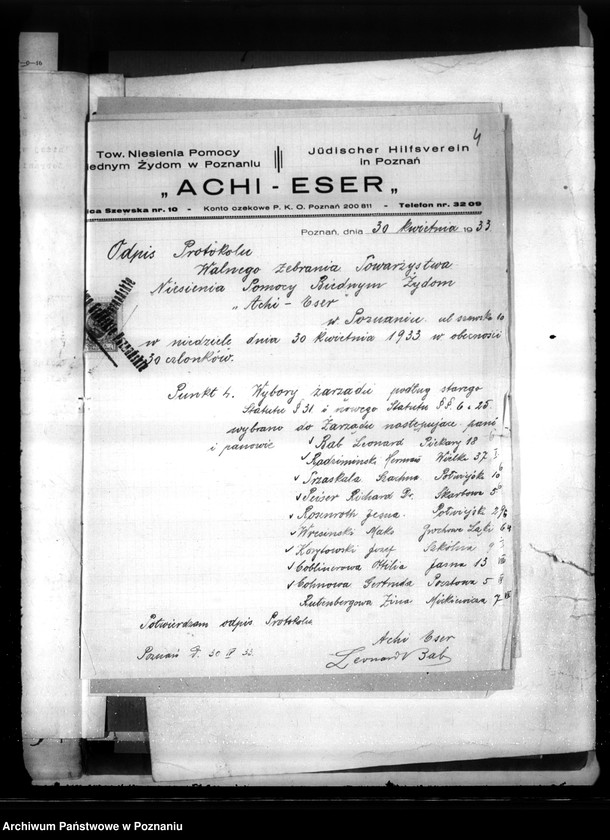 4
Tow. Niesienia Pomocy
iednym Żydom w Poznaniu
Jüdischer Hilfsverein
in Poznań
„ ACHI - ESER „
ica Szewska nr. 10 - Konto czekowe P. K. O. Poznań 200 811 - Telefon nr. 32 09
Poznań, dnia 30 kwietnia 1933.
Odpis Protokołu
Walnego Zebrania Towarzystwa
Niesienia Pomocy Biednym Żydom
"Achi - Eser"
w Poznaniu ul szewska 10
w niedziele dnia 30 kwietnia 1933 w obecności
30 członków.
Punkt 4. Wybory zarządu podług starego
Statutu § 31 i nowego Statutu §§ 6 i 25
wybrano do Zarządu następujące panie
i panowie
Bab Leonard Piekary 18
Radzimiński Herman Wielka 37
Trzaskała Szachna Półwiejska 10
Peiser Richard Dr. Skarbowa 5
Rosenroth Półwiejska
Wresinski Maks Grochowe Łąki 6
Korytowski Josef Szkólna 9
Coblinerowa Ottilia Jasna 13
Cohnowa Gertruda Pocztowa 5
Rubenbergowa Zina Mickiewicza 7
Potwierdzam odpis Protokołu
Achi Eser
Poznań d. 30 IV 33.
Leonard Bab
Archiwum Państwowe w Poznaniu